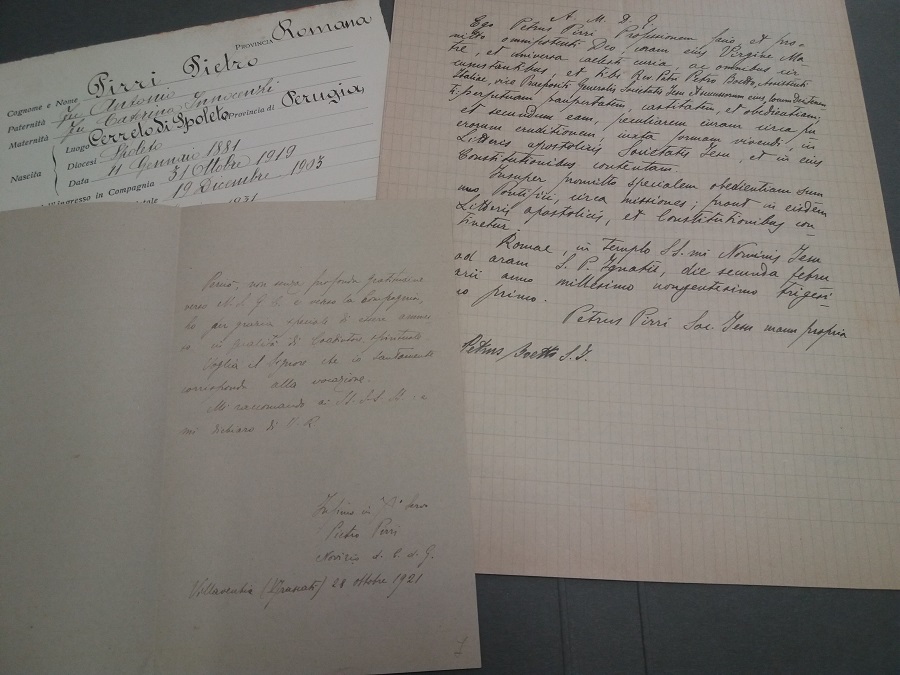 Provincia Romana
Cognome e Nome Pirri Pietro
Paternità fu Antonio
Maternità fu Caterina Innocenti
Nascita
Luogo Cerreto di Spoleto Provincia di Perugia
Diocesi Spoleto
Data 11 Gennaio 1881
Ingresso in Compagnia 31 Ottobre 1919
19 Dicembre 1903
1931
A. M. D. G.
Ego Petrus Pirri Professionem facio, et pro-
mitto omnipotenti Deo, coram eius Virgine Ma-
tre, et universa caelesti curia, ac omnibus cir-
cumstantibus, et tibi Rev. Patri Petro Boetto, Assistenti
Italiae, vice Praepositi Generalis Societatis Iesu et successorum eius, locum Dei tenenti
perpetuam paupertatem, castitatem, et obedientiam;
et secundum eam, peculiarem curam circa pu-
erorum eruditionem, iuxta formam vivendi, in
Litteris apostolicis Societatis Iesu, et in eius
Constitutionibus contentam.
Insuper promitto specialem obedientiam Sum-
mo Pontifici, circa missiones; prout in eisdem
Litteris apostolicis, et Constitutionibus con-
tinetur.
Romae, in templo SS.mi Nominis Iesu
ad aram S. P. Ignatii, die secunda febru-
arii anno millesimo nongentesimo trigesi-
mo primo.
Petrus Pirri Soc. Iesu manu propria
Petrus Boetto S. J.
non senza profonda gratitudine
verso N. S. G. C. e verso la Compagnia,
per grazia speciale di essere ammes-
so in qualità di Coadiutore spirituale
Voglia il Signore che io santamente
corrisponda alla vocazione.
Mi raccomando ai SS. SS. e
mi dichiaro di V. R.
Infimo in servo
Pietro Pirri
Novizio d. C. d. G.
(Frascati) 28 ottobre 1921